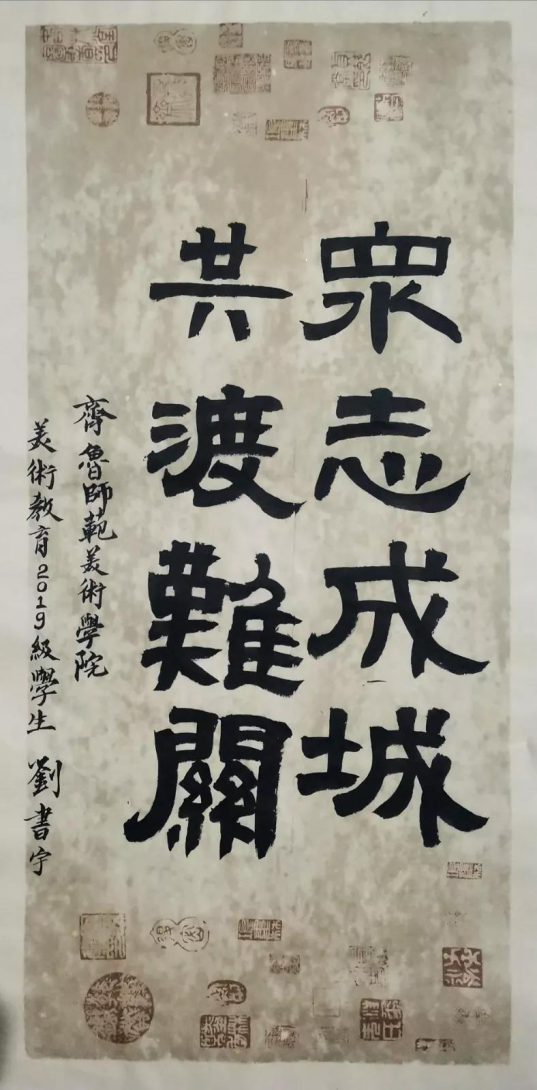 眾志成城
共渡難關
齊魯師範美術學院
美術教育2019級學生 劉書宇